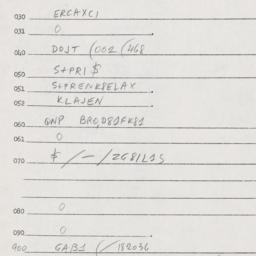 030 ERCAXCI
031 0
040 DOJT (002 (468
050 S+PRI $
051 S+PRENKRELAX
052 KLAJEN
060 QNP BRO,D81FK81
061 0
070 $ /-/2G81L1S
080 0
090 0
900 GAB1 (/182036